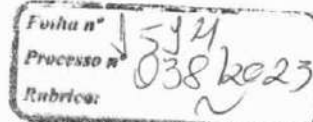 Folha nº
Processo nº 038/2023
Rubrica: